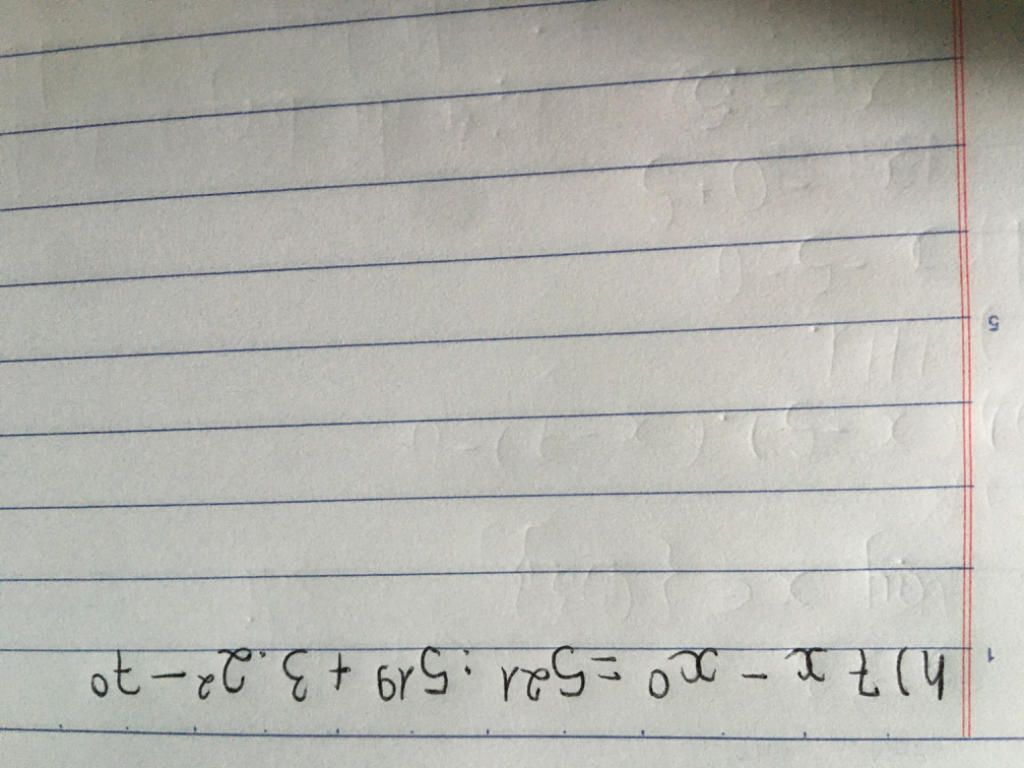 h) 7x - x⁰ = 521 : 519 + 3.2² - 7⁰
1
5